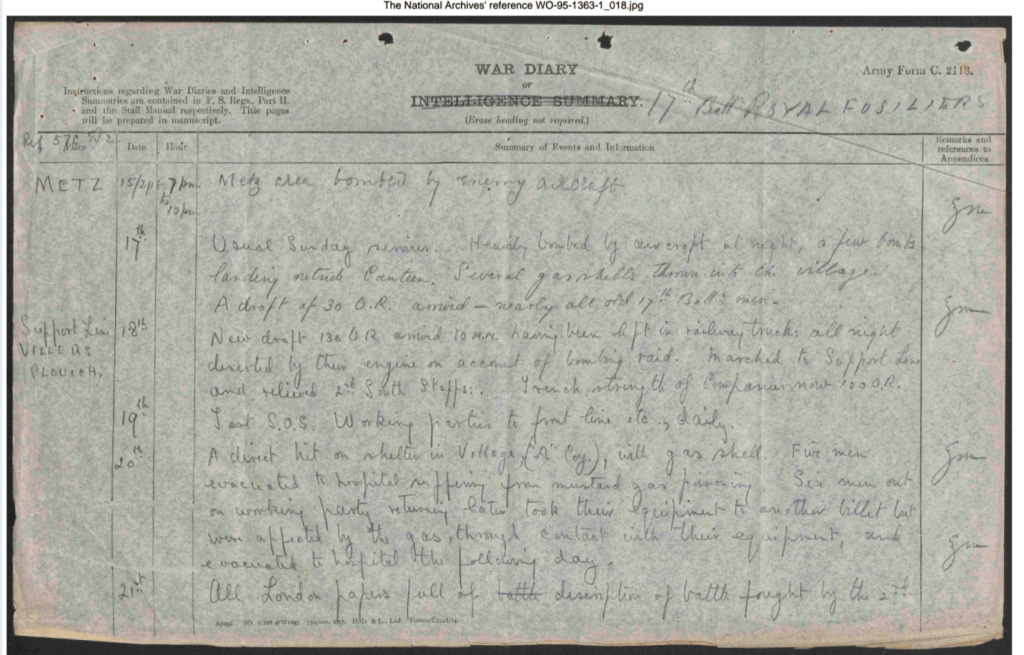 The National Archives' reference WO-95-1363-1_018.jpg
WAR DIARY
or
INTELLIGENCE SUMMARY.
(Erase heading not required.)
Army Form C. 2118.
Instructions regarding War Diaries and Intelligence
Summaries are contained in F. S. Regs., Part II.
and the Staff Manual respectively. Title pages
will be prepared in manuscript.
17th Batt ROYAL FUSILIERS
Ref 57C
Place Date Hour Summary of Events and Information Remarks and references to Appendices
METZ 15/2/18 7pm to 10pm Metz area bombed by enemy aircraft
17th Usual Sunday services. Heavily bombed by aircraft at night, a few bombs
landing outside Canteen. Several gas shells thrown into the village.
A draft of 30 O.R. arrived – nearly all old 17th Battn men.
Support Line VILLERS PLOUICH. 18th New draft 130 O.R. arrived 10 A.M. having been left in railway trucks all night
deserted by their engine on account of bombing raid. Marched to Support Line
and relieved 2nd South Staffs. Trench strength of Companies now 100 O.R.
19th Test S.O.S. Working parties to front line etc., daily.
20th A direct hit on shelter in Village ('A' Coy.), with gas shell. Five men
evacuated to hospital suffering from mustard gas poisoning Six men out
on working party returning later took their equipment to another billet but
were affected by the gas, through contact with their equipment, and
evacuated to hospital the following day.
21st All London papers full of battle description of battle fought by the 2nd